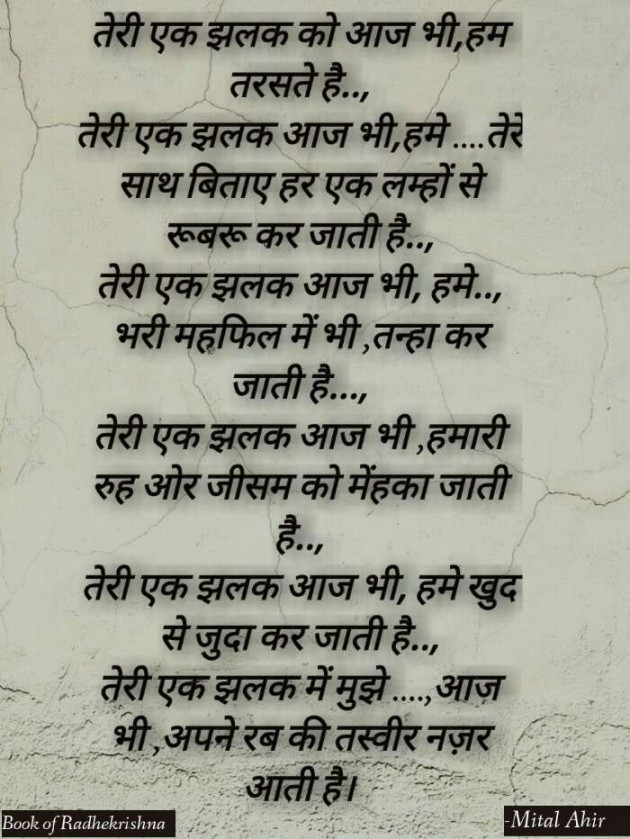 तेरी एक झलक को आज भी,हम
तरसते है..,
तेरी एक झलक आज भी,हमे ....तेरे
साथ बिताए हर एक लम्हों से
रूबरू कर जाती है..,
तेरी एक झलक आज भी, हमे..,
भरी महफिल में भी ,तन्हा कर
जाती है...,
तेरी एक झलक आज भी ,हमारी
रुह ओर जीसम को मेंहका जाती
है..,
तेरी एक झलक आज भी, हमे खुद
से जुदा कर जाती है..,
तेरी एक झलक में मुझे ....,आज
भी ,अपने रब की तस्वीर नज़र
आती है।
Book of Radhekrishna
-Mital Ahir